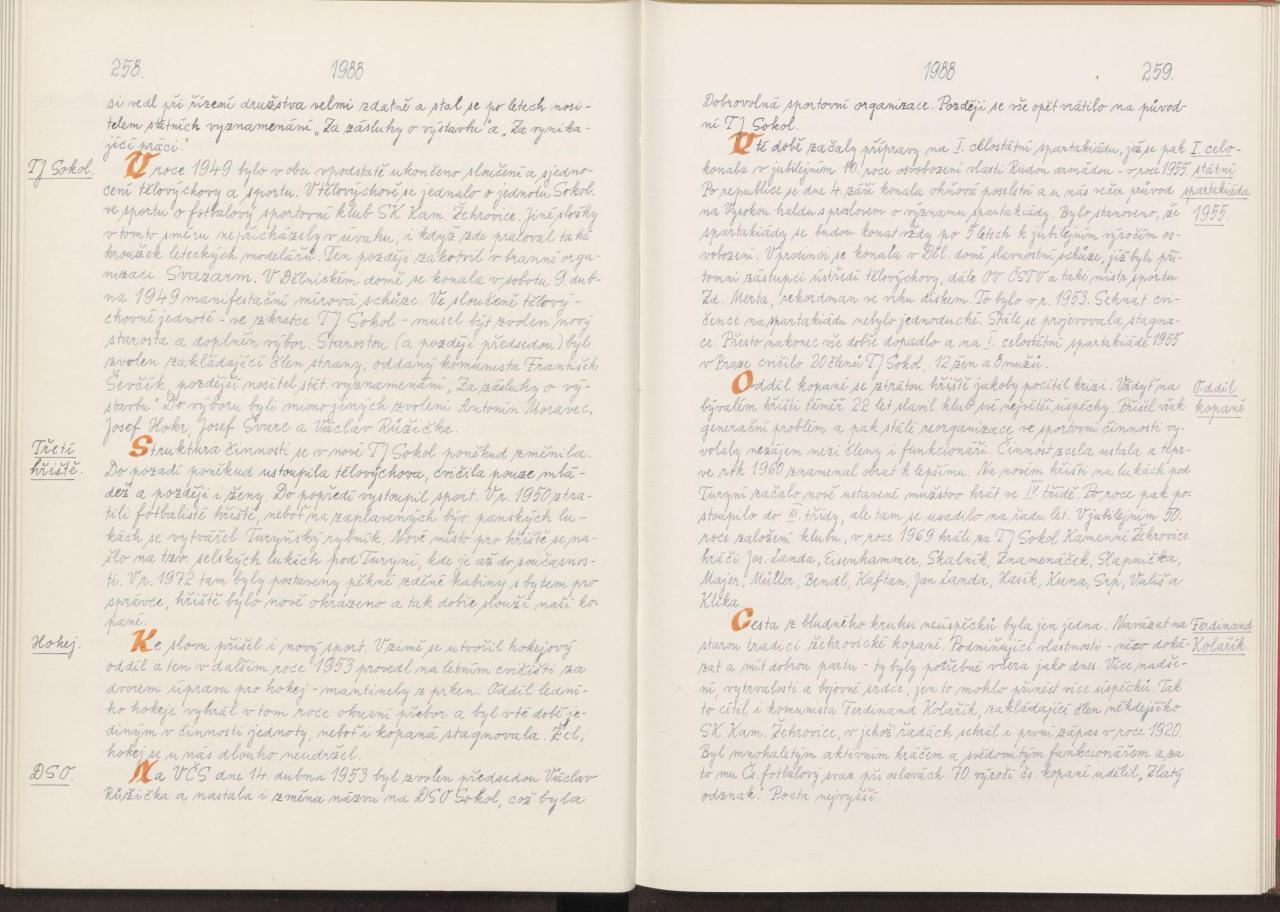 258.
1988
si vedl při řízení družstva velmi zdatně a stal se po letech nosi-
telem státních vyznamenání „Za zásluhy o výstavbu" a „Za vynika-
jící práci."
TJ Sokol.
V roce 1949 bylo v obci v podstatě ukončeno sloučení a sjedno-
cení tělovýchovy a sportu. V tělovýchově se jednalo o jednotu Sokol,
ve sportu o fotbalový sportovní klub SK Kam. Žehrovice. Jiné složky
v tomto směru nepřicházely v úvahu, i když zde pracoval také
kroužek leteckých modelářů. Ten později zakotvil v branné orga-
nizaci Svazarm. V Dělnickém domě se konala v sobotu 9. dub-
na 1949 manifestační mírová schůze. Ve sloučené tělový-
chovné jednotě - ve zkratce TJ Sokol - musel být zvolen nový
starosta a doplněn výbor. Starostou (a později předsedou) byl
zvolen zakládající člen strany, oddaný komunista František
Ševčík, pozdější nositel stát. vyznamenání „Za zásluhy o vý-
stavbu." Do výboru byli mimo jiných zvoleni Antonín Moravec,
Josef Hokr, Josef Švarc a Václav Růžička.
Třetí
hřiště.
Struktura činnosti se v nové TJ Sokol poněkud změnila.
Do pozadí poněkud ustoupila tělovýchova, cvičila pouze mlá-
dež a později i ženy. Do popředí vystoupil sport. V r. 1950 ztra-
tili fotbalisté hřiště, neboť na zaplavených býv. panských lu-
kách se vytvářel Turyňský rybník. Nové místo pro hřiště se na-
šlo na tzv. selských lukách pod Turyní, kde je až do současnos-
ti. V r. 1972 tam byly postaveny pěkné zděné kabiny s bytem pro
správce, hřiště bylo nově ohrazeno a tak dobře slouží naší ko-
pané.
Hokej.
Ke slovu přišel i nový sport. V zimě se utvořil hokejový
oddíl a ten v dalším roce 1953 provedl na letním cvičišti za
dvorem úpravu pro hokej - mantinely z prken. Oddíl lední-
ho hokeje vyhrál v tom roce okresní přebor a byl v té době je-
diným v činnosti jednoty, neboť i kopaná stagnovala. Žel,
hokej se u nás dlouho neudržel.
DSO.
Na VČS dne 14. dubna 1953 byl zvolen předsedou Václav
Růžička a nastala i změna názvu na DSO Sokol, což byla
1988
259.
Dobrovolná sportovní organizace. Později se vše opět vrátilo na původ-
ní TJ Sokol.
V té době začaly přípravy na I. celostátní spartakiádu, jež se pak
I. celo-
státní
spartakiáda
1955.
konala v jubilejním 10. roce osvobození vlasti Rudou armádou - v roce 1955.
Po republice se dne 4. září konala okružní poselství a u nás večer průvod
na Vysokou haldu s proslovem o významu spartakiády. Bylo stanoveno, že
spartakiády se budou konat vždy po 5 letech k jubilejním výročím os-
vobození. V prosinci se konala v Děl. domě slavnostní schůze, jíž byli pří-
tomni zástupci ústředí tělovýchovy, dále OV ČSTV a také mistr sportu
Zd. Merta, rekordman ve vrhu diskem. To bylo v r. 1953. Sehnat cvi-
čence na spartakiádu nebylo jednoduché. Stále se projevovala stagna-
ce. Přesto nakonec vše dobře dopadlo a na I. celostátní spartakiádě 1955
v Praze cvičilo 20 členů TJ Sokol, 12 žen a 8 mužů.
Oddíl
kopané
Oddíl kopané se ztrátou hřiště jakoby pocítil krizi. Vždyť na
bývalém hřišti téměř 22 let slavil klub své největší úspěchy. Přišel však
generační problém a pak stálé reorganizace ve sportovní činnosti vy-
volaly nezájem mezi členy i funkcionáři. Činnost zcela ustala a tepr-
ve rok 1960 znamenal obrat k lepšímu. Na novém hřišti na lukách pod
Turyní začalo nově ustavené mužstvo hrát ve IV. třídě. Po roce pak po-
stoupilo do III. třídy, ale tam se usadilo na řadu let. V jubilejním 50.
roce založení klubu, v roce 1969 hráli za TJ Sokol Kamenné Žehrovice
hráči Jos. Landa, Eisenhammer, Skalník, Znamenáček, Slapnička,
Majer, Müller, Bendl, Kaftan, Jan Landa, Hasík, Kuna, Srp, Vališ a
Klika.
Ferdinand
Kolařík.
Cesta z bludného kruhu neúspěchů byla jen jedna. Navázat na
starou tradici žehrovické kopané. Podmiňující vlastnosti - něco doká-
zat a mít dobrou partu - ty byly potřebné včera jako dnes. Více nadše-
ní, vytrvalosti a bojovné srdce, jen to mohlo přinést více úspěchů. Tak
to cítil i komunista Ferdinand Kolařík, zakládající člen někdejšího
SK Kam. Žehrovice, v jehož řadách sehrál i první zápas v roce 1920.
Byl mnohaletým aktivním hráčem a svědomitým funkcionářem a za
to mu Čs. fotbalový svaz při oslavách 70. výročí čs. kopané udělil „Zlatý
odznak." Pocta nejvyšší.